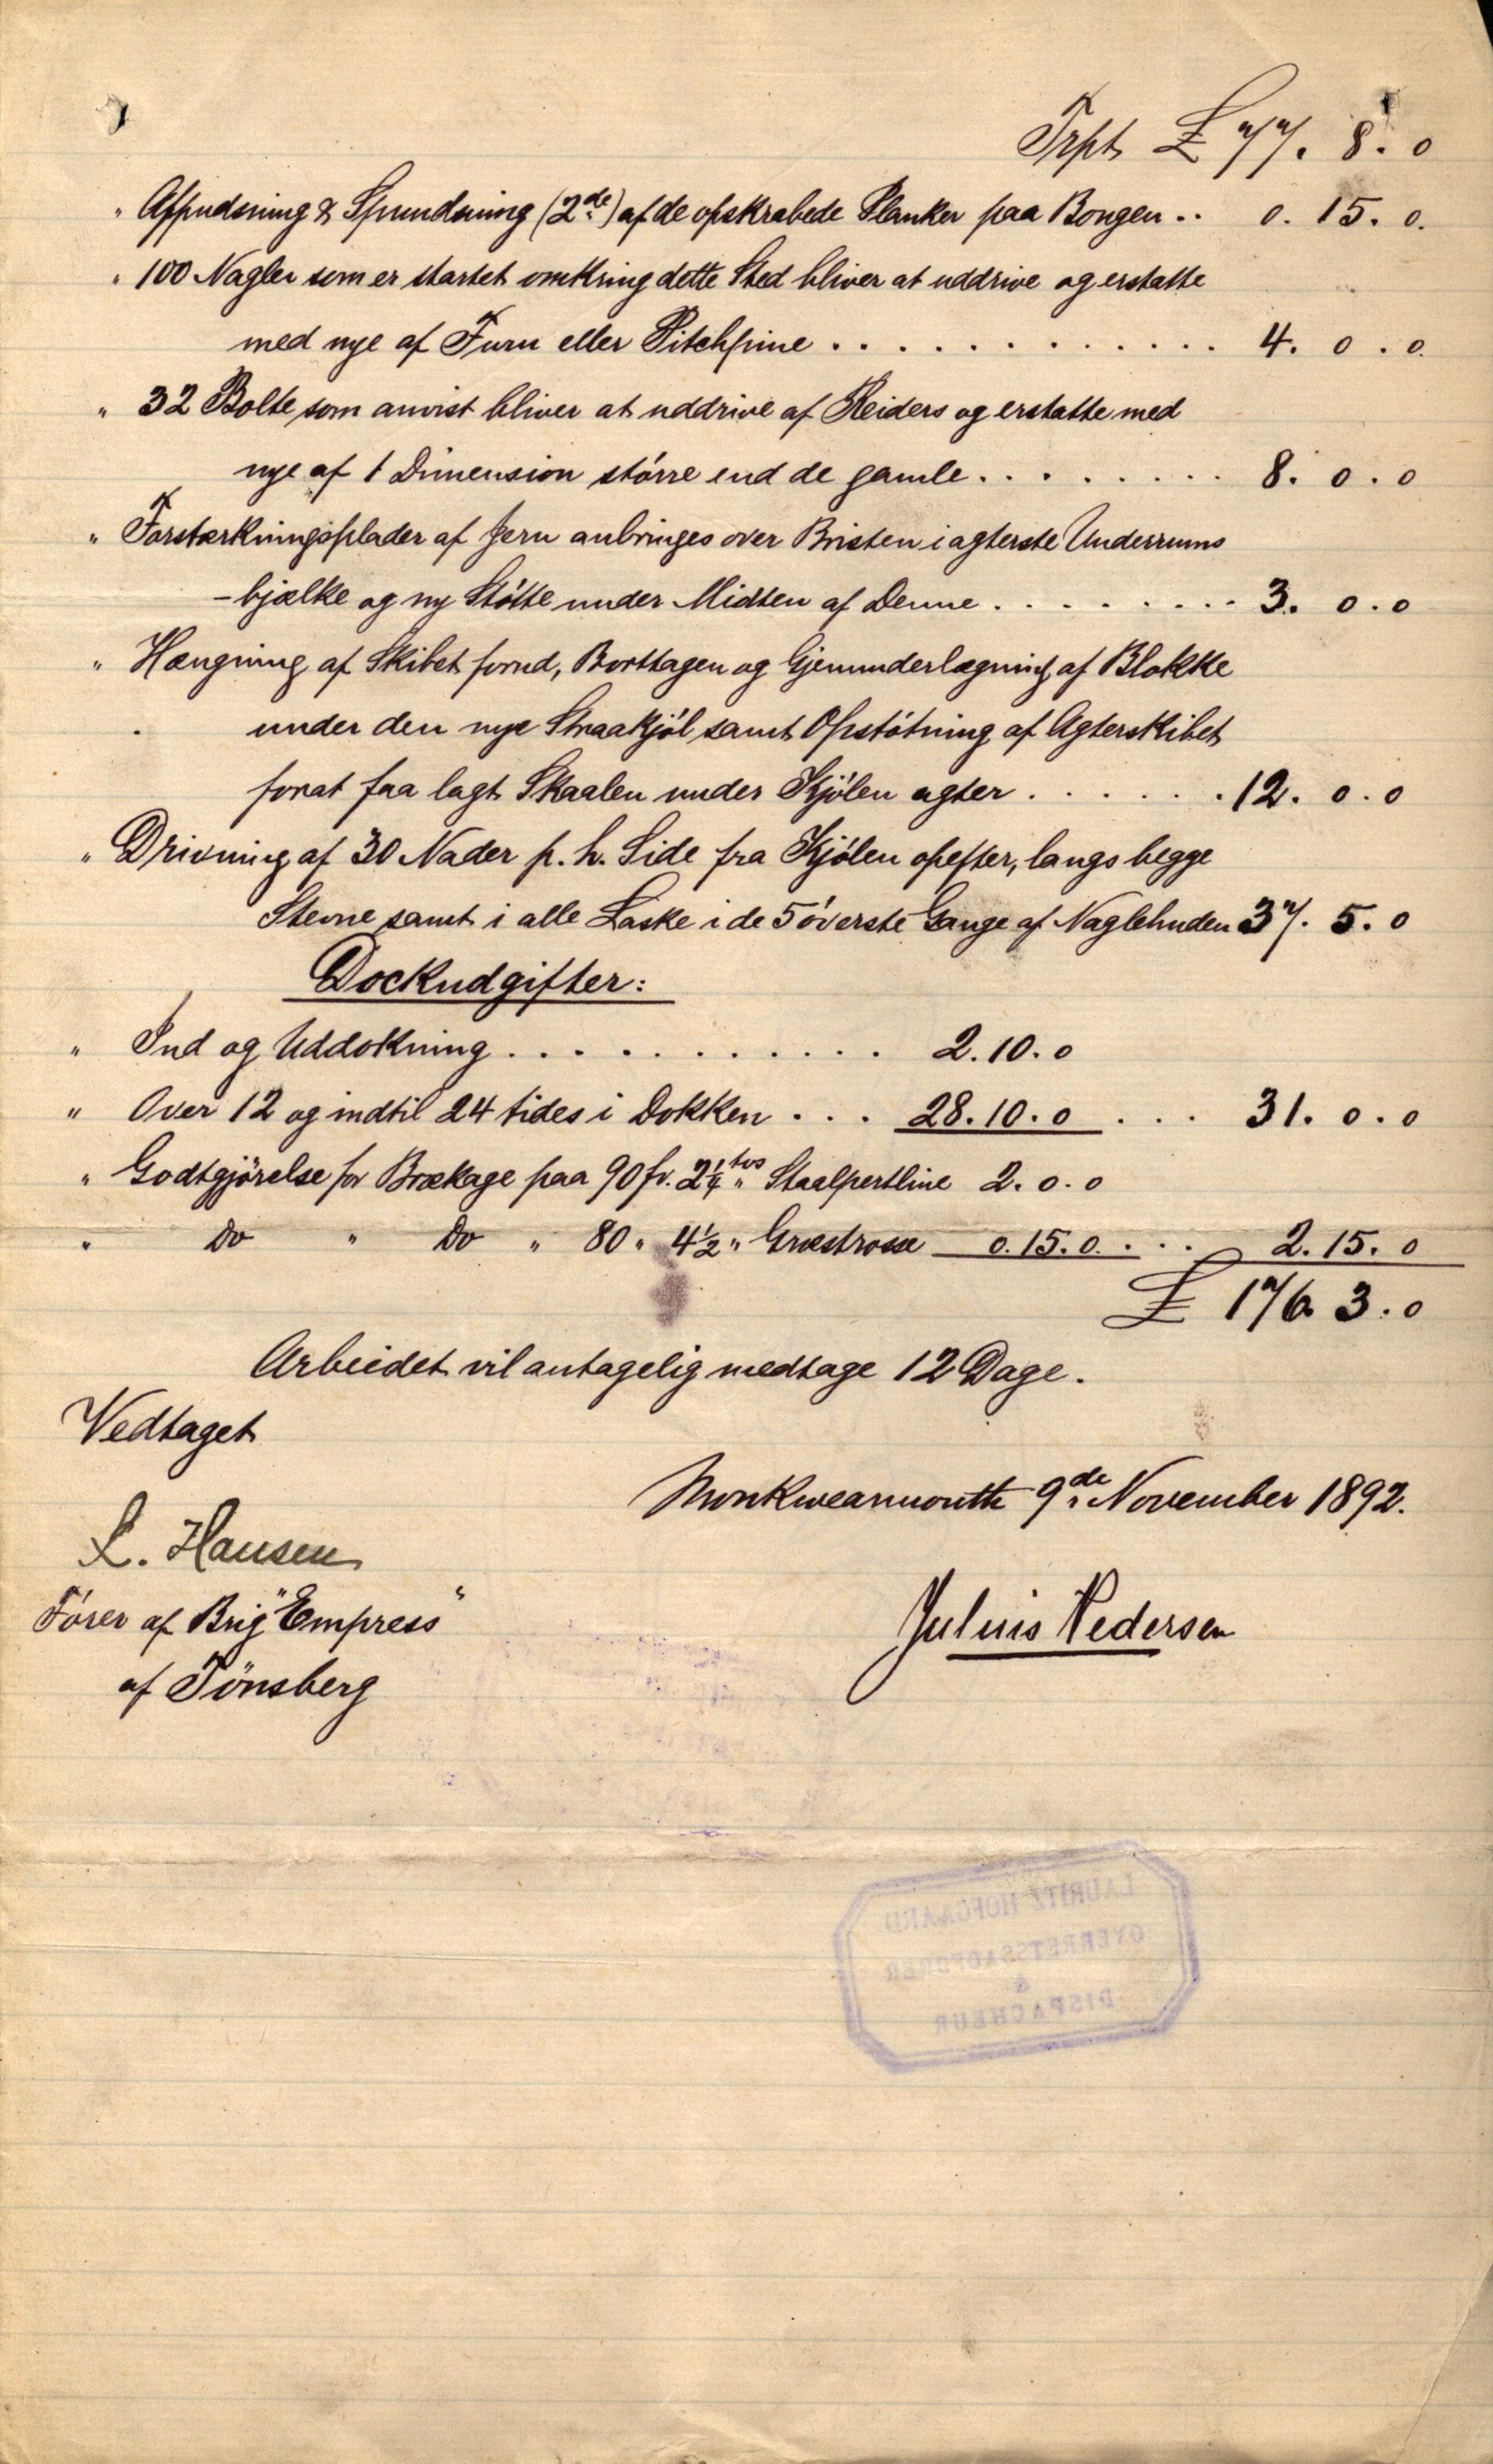 Trpt £ 77. 8. 0
" Afpudsning & Spundsning (2de) af de opskrabede Planker paa Bougen .. 0. 15. 0.
" 100 Nagler som er startet omkring dette Sted bliver at uddrive og erstatte
med nye af Furu eller Pitchpine . . . . . . . . . . . . . 4. 0. 0.
" 32 Bolte som anvist bliver at uddrive af Reiders og erstatte med
nye af 1 Dimension större end de gamle . . . . . . . . . 8. 0. 0
" Forstærkningsplader af Jern anbringes over Bristen i agterste Underrums
-bjælke og ny Stötte under Midten af Denne . . . . . . . . . 3. 0. 0
" Hængning af Skibet forud, Borttagen og Gjenunderlægning af Blokke
under den nye Straakjöl samt Opstötning af Agterskibet
forat faa lagt Skaalen under Kjölen agter . . . . . . . 12. 0. 0
" Drivning af 30 Nader p. h. Side fra Kjölen opefter, langs begge
Stevne samt i alle Laske i de 5 överste Gange af Naglehuden 37. 5. 0
Dockudgifter:
" Ind og Uddokning . . . . . . . . . . . . 2. 10. 0
" Over 12 og indtil 24 tides i Dokken . . . 28. 10. 0 . . . 31. 0. 0
" Godtgjörelse for Brækage paa 90 fv. 2 1/4 " Staalpertline 2. 0. 0
" Do " Do " 80 " 4 1/2 " Græstrosse 0. 15. 0. . . . 2. 15. 0
£ 176. 3. 0
Arbeidet vil antagelig medtage 12 Dage.
Vedtaget
Monkwearmouth 9de November 1892.
L. Hansen
Förer af Brig "Empress"
Julius Pedersen
af Tönsberg
LAURITZ HOFGAARD
OVERRETSSAGFÖRER
&
DISPACHEUR